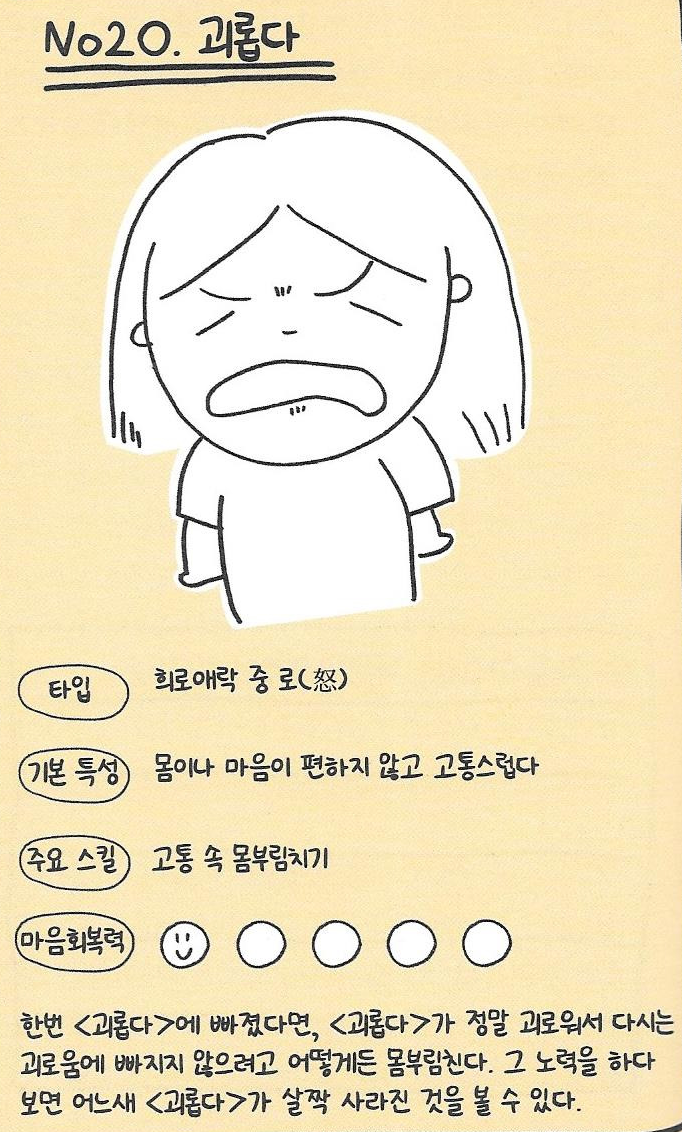 No20. 괴롭다
타입 희로애락 중 로(怒)
기본 특성 몸이나 마음이 편하지 않고 고통스럽다
주요 스킬 고통 속 몸부림치기
마음회복력
한번 <괴롭다>에 빠졌다면, <괴롭다>가 정말 괴로워서 다시는
괴로움에 빠지지 않으려고 어떻게든 몸부림친다. 그 노력을 하다
보면 어느새 <괴롭다>가 살짝 사라진 것을 볼 수 있다.